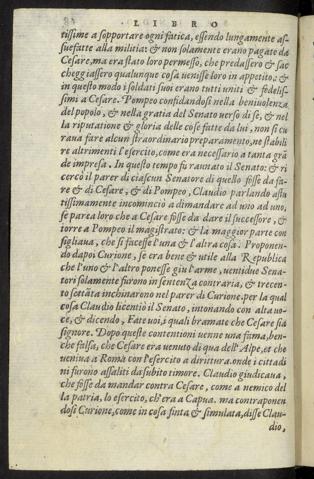 LIBRO
tissime a sopportare ogni fatica, essendo lungamente as-
suefatte alla militia: & non solamente erano pagate da
Cesare, ma era stato loro permesso, che predassero & sac
cheggiassero qualunque cosa uenisse loro in appetito: &
in questo modo i soldati suoi erano tutti uniti & fedelis-
simi a Cesare. Pompeo confidandosi nella beniuolenza
del popolo, & nella gratia del Senato uerso di se, & nel
la riputatione & gloria delle cose fatte da lui, non si cu
raua fare alcun straordinario preparamento, ne stabili
re altrimenti l'esercito, come era necessario a tanta grã
de impresa. In questo tempo fu raunato il Senato: & ri
cercò il parer di ciascun Senatore di quello fosse da fa-
re & di Cesare, & di Pompeo, Claudio parlando astu
tissimamente incominciò a dimandare ad uno ad uno,
se parea loro che a Cesare fosse da dare il successore, &
torre a Pompeo il magistrato: & la maggior parte con
sigliaua, che si facesse l'una & l'altra cosa. Proponen-
do dapoi Curione, se era bene & utile alla Republica
che l'uno & l'altro ponesse giu l'arme, uentidue Sena-
tori solamente furono in sentenza contraria, & trecen-
to settãta inchinarono nel parer di Curione. per la qual
cosa Claudio licentiò il Senato, intonando con alta uo-
ce, & dicendo, Fate uoi, i quali bramate che Cesare sia
signore. Dopo queste contentioni uenne una fama, ben-
che falsa, che Cesare era uenuto di qua dell'Alpe, et che
ueniua a Roma con l'esercito a dirittura. onde i cittadi
ni furono assaliti da subito timore. Claudio giudicaua,
che fosse da mandar contra Cesare, come a nemico del
la patria, lo esercito, ch'era a Capua. ma contraponen
dosi Curione, come in cosa finta & simulata, disse Clau-
dio,